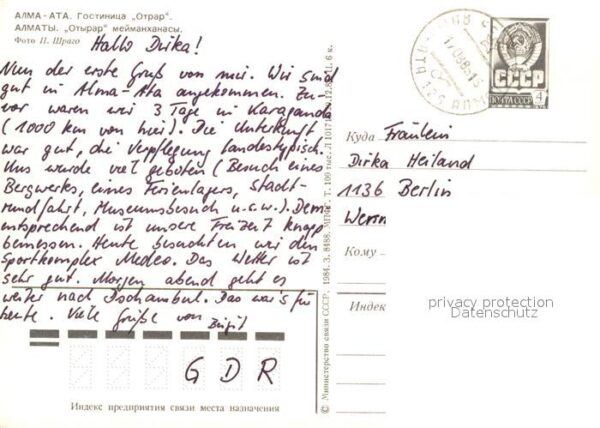 АЛМА-АТА. Гостиница „Отрар“.
АЛМАТЫ. „Отырар“ мейманханасы.
Фото П. Шраго
Hallo Dirka!
Nun der erste Gruß von mir. Wir sind
gut in Alma-Ata angekommen. Zu-
vor waren wir 3 Tage in Karaganda
(1000 km von hier). Die Unterkunft
war gut, die Verpflegung landestypisch.
Uns wurde viel geboten (Besuch eines
Bergwerks, eines Ferienlagers, Stadt-
rundfahrt, Museumsbesuch u.s.w.). Dem
entsprechend ist unsere Freizeit knapp
bemessen. Heute besuchten wir den
Sportkomplex Medeo. Das Wetter ist
sehr gut. Morgen abend geht es
weiter nach Dschambul. Das war's für
heute. Viele Grüße von Birgit
GDR
Индекс предприятия связи места назначения
© Министерство связи СССР. 1984. З. 8488. МПФГ. Т. 100 тыс. Ц. 6 к.
СССР
ПОЧТА СССР
4
Куда Fräulein
Dirka Heiland
1136 Berlin
Кому
Индек
privacy protection
Datenschutz